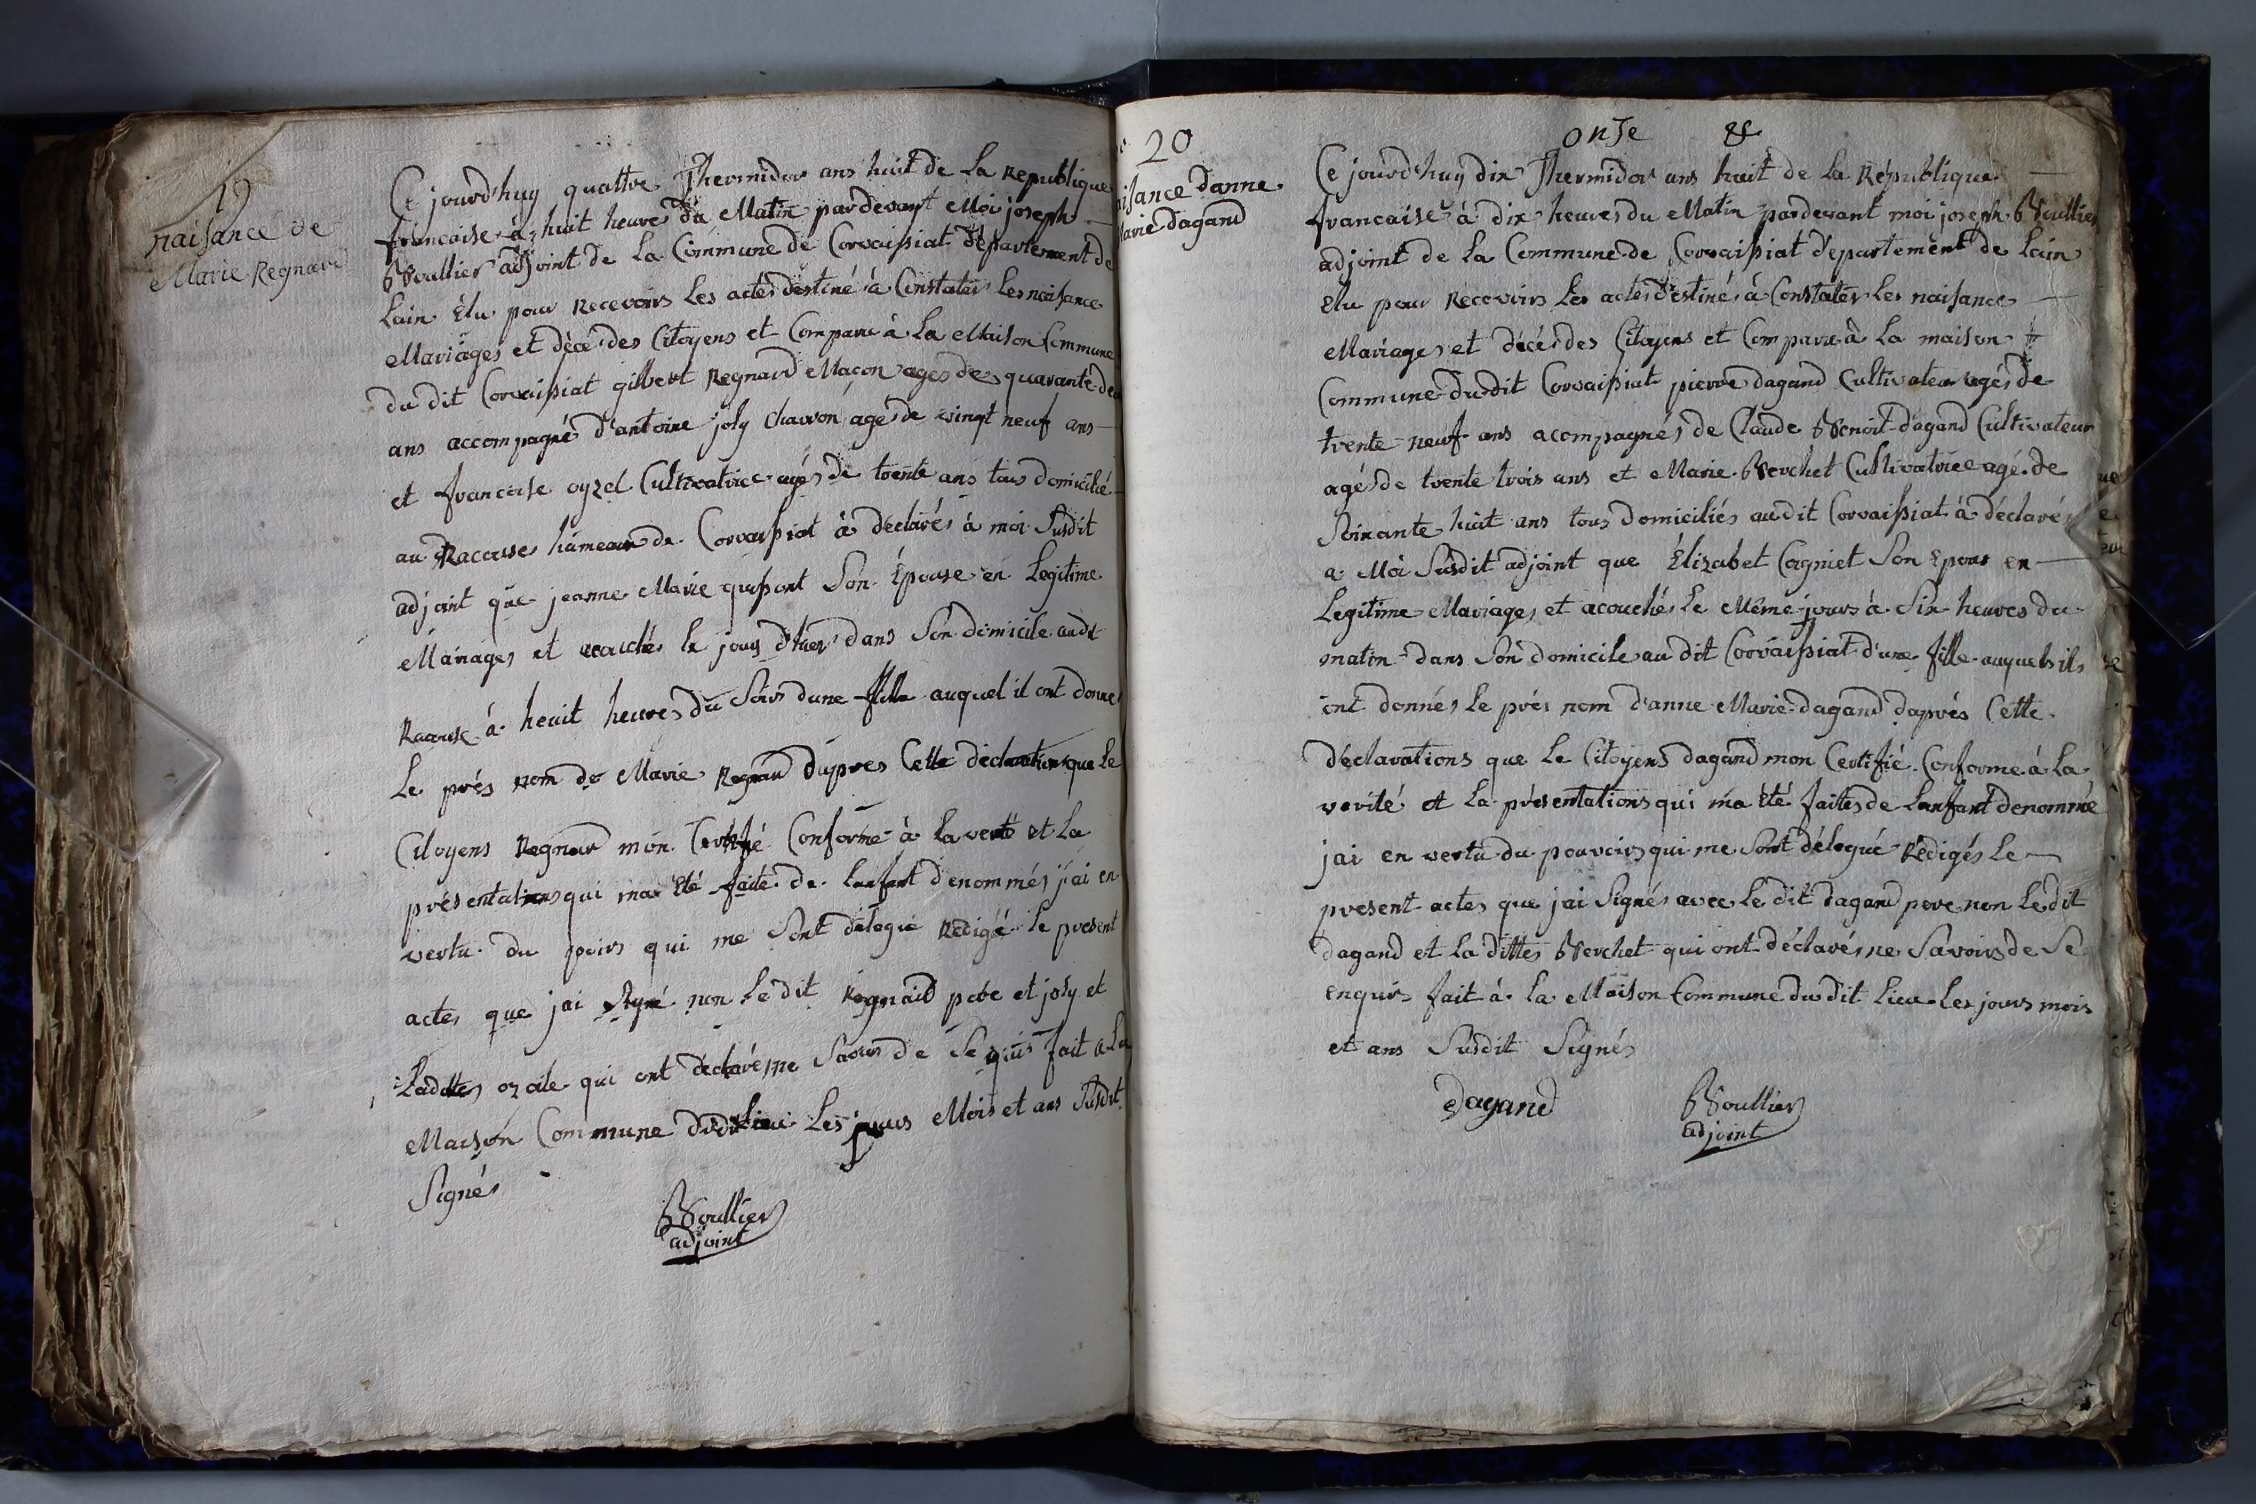 19
naisance de
Marie Regnard
Ce jourd'huy quattre Thermidor ans huit de la Republique
francaise à huit heure du Matin pardevant Moi joseph
Boullier adjoint de la Commune de Corvaissiat département de
Lain Elu pour Recevoirs les actes destiné à Constater les naisance
Mariages et décé des Citoyens et Comparu à la Maison Commune
du dit Corvaissiat gilbert Regnard Maçon ages de quarante deux
ans accompagné d'antoine joly Charron age de vingt neuf ans
et francoise oyzel Cultivatrice agés de trente ans tous domicilié
au Racouse hameau de Corvaissiat à déclarés à moi Susdit
adjoint que jeanne Marie Son Épouse en Legitime
Mariages et acouchés le jours d'hier dans Son domicile audit
Racouse à heuit heures du Soirs dune fille auquel il ont donnes
le prés nom de Marie Regnard daprés Cette déclarations que le
Citoyens Regnard mon Certifié Conforme à la verité et la
présentations qui ma Eté faite de lenfant denommés jai en
vertu du poirs qui me Sont délegué Redigé le present
actes que jai Signé non le dit Regnaid pere et joly et
Ladittes ozaile qui ont déclarés ne Savoirs de Se quis fait a La
Maison Commune dudit lieu les jours Mois et ans Susdit
Signés
Boullier
adjoint
20
naisance d'anne
Marie dagand
onse &
Ce jourd'huy dix Thermidor ans huit de la Républiques
francaise à dix heures du Matin pardevant moi joseph Boullier
adjoint de la Commune de Corvaissiat département de Lain
Elu pour Recevoirs les actes destinés à Constater les naisance
Mariages et décés des Citoyens et Comparu à La maison
Commune dudit Corvaissiat pierre dagand Cultivateur agés de
trente neuf ans acompagnés de Claude Benoit dagand Cultivateur
agés de trente trois ans et Marie Berchet Cultivatrice agé de
Soixante huit ans tous domiciliés audit Corvaissiat à déclarés
a Moi Susdit adjoint que Élizabet Cogniet Son Epous en
Legitime Mariages et acouchés le Même jours à Six heures du
matin dans Son domicile au dit Corvaissiat d'une fille auquels ils
ont donnés le prés nom d'anne Marie dagand daprés Cette
déclarations que le Citoyens dagand mon Certifié Conforme à la
verité et la présentations qui ma Eté faites de lenfant denommé
jai en vertu du pouvoirs qui me Sont délegué Redigés le
present actes que jai Signés avec le dit dagand pere non ledit
dagand et la dittes Berchet qui ont déclarés ne Savoirs de Se
enquis fait à la Maison Commune du dit lieu les jours mois
et ans Susdit Signés
Dagand
Boullier
adjoint